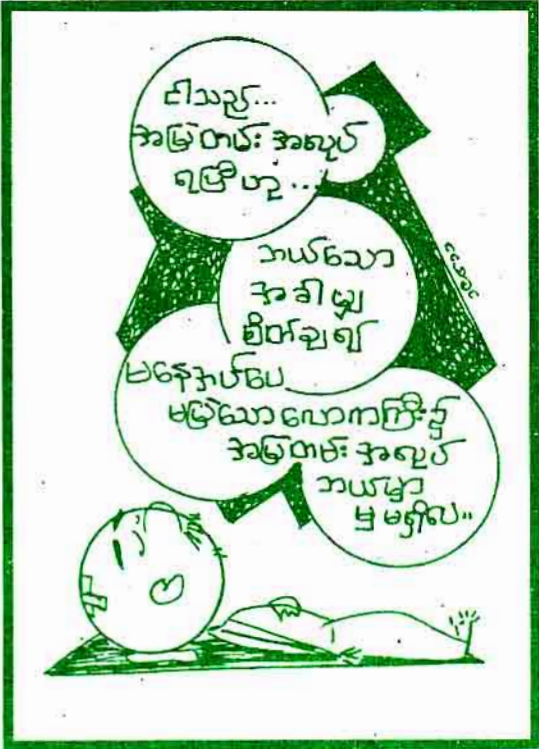 ငါသည်...
အမြဲတမ်း အလုပ်
ရပြီဟု...
ဘယ်သော
အခါမျှ
စိတ်ချ၍
မနေအပ်ပေ
မမြဲသောလောကကြီး၌
အမြဲတမ်း အလုပ်
ဘယ်မှာ
မျှ မရှိလ။